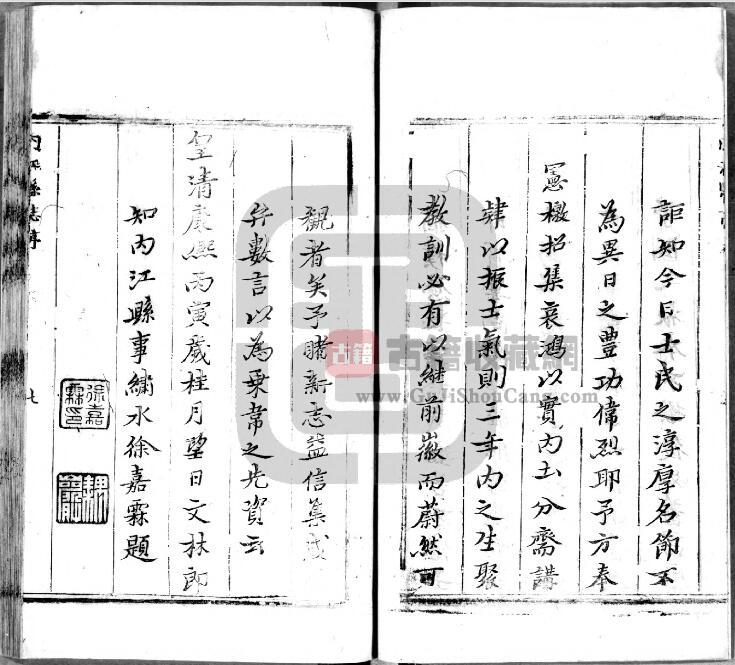 詎知今日士民之淳厚名節不
為異日之豐功偉烈耶予方奉
憲檄招集哀鴻以實內土分齋講
肄以振士氣則三年內之生聚
教訓必有以繼前徽而蔚然可
觀者矣予睹新志益信纂成
弁數言以為乗韋之先資云
皇清康熙丙寅歲桂月望日文林郎
知內江縣事繡水徐嘉霖題
內江縣志序
七
徐嘉霖印
古籍
古籍收藏網
www.GuJiShouCang.com